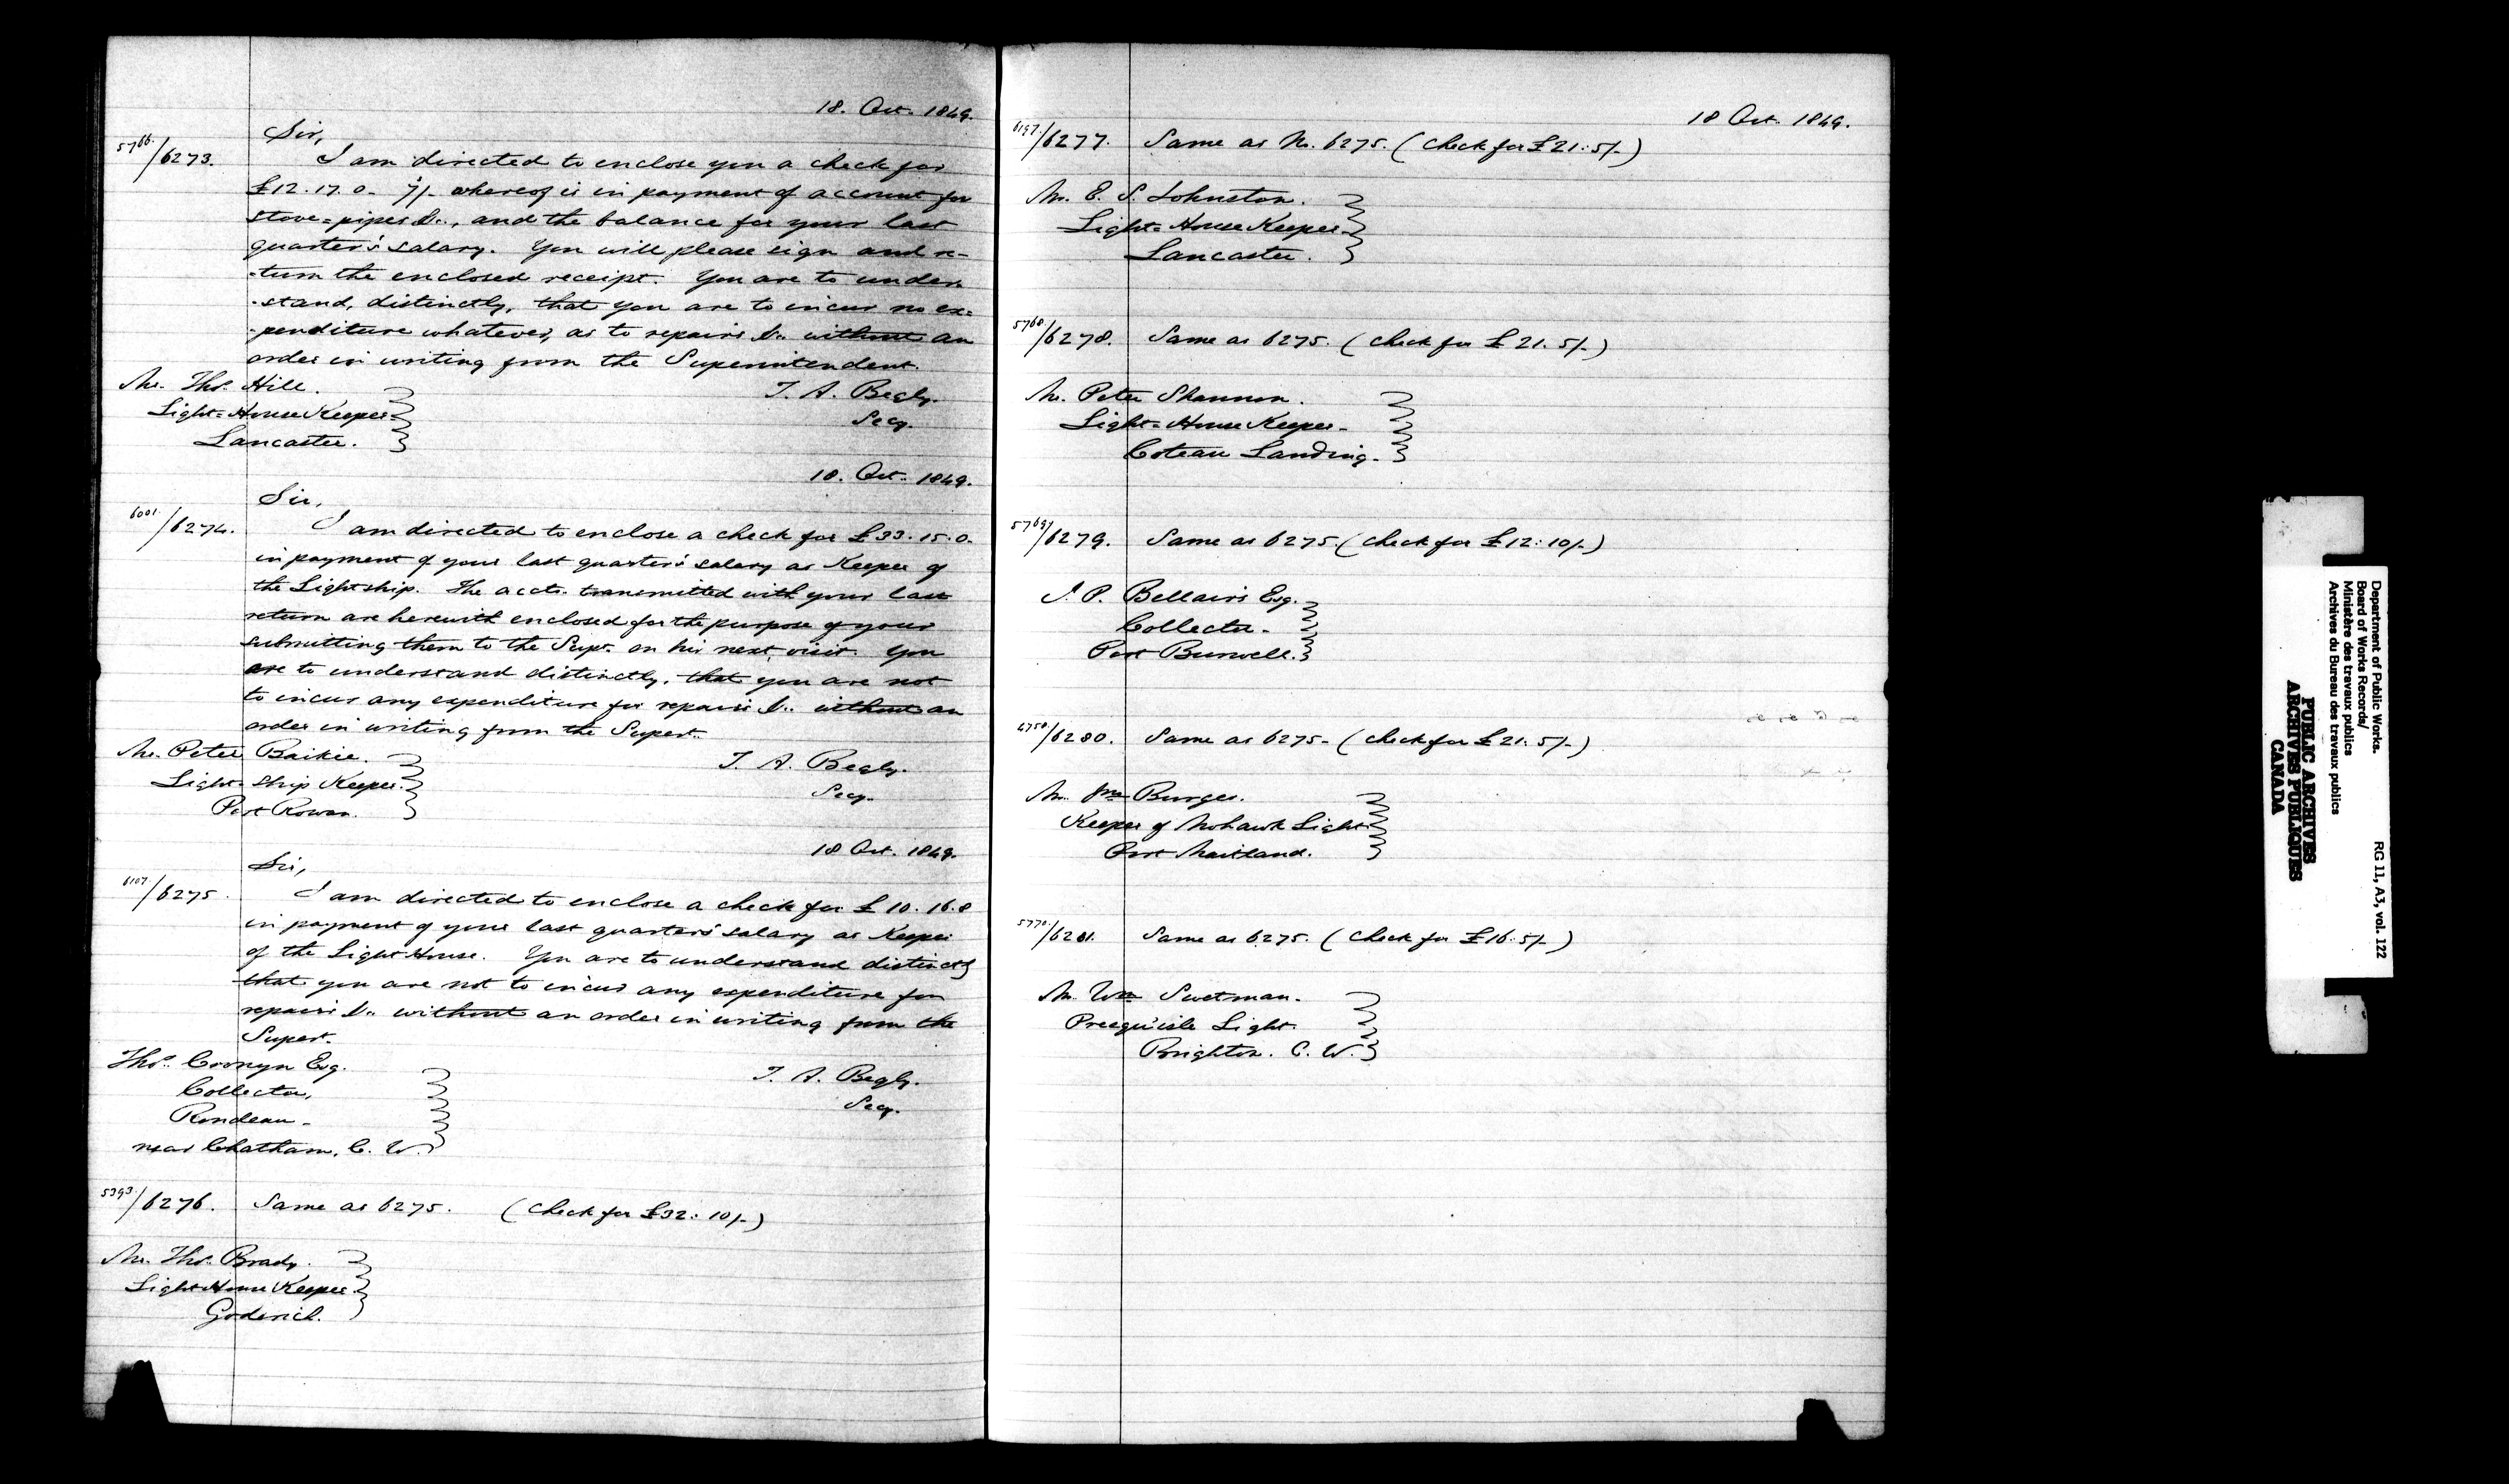 18. Oct. 1849.
Sir,
5766./6273. I am directed to enclose you a check for
£12.17.0. 7/- whereof is in payment of account for
stove=pipes &c., and the balance for your last
quarter's salary. You will please sign and re-
-turn the enclosed receipt. You are to under-
-stand, distinctly, that you are to incur no ex=
-penditure whatever, as to repairs &c. without an
order in writing from the Superintendent.
Mr. Thos. Hill.
Light=House Keeper
Lancaster.
T. A. Begly.
Secy.
18. Oct. 1849.
Sir,
6001./6274. I am directed to enclose a check for £33.15.0.
in payment of your last quarter's salary as Keeper of
the Lightship. The accts. transmitted with your last
return are herewith enclosed for the purpose of your
submitting them to the Supt. on his next visit. You
are to understand distinctly, that you are not
to incur any expenditure for repairs &c. without an
order in writing from the Supert.
Mr. Peter Baikie.
Light=Ship Keeper.
Port Rowan.
T. A. Begly.
Secy.
18 Oct. 1849.
Sir,
6107./6275. I am directed to enclose a check for £10.16.8
in payment of your last quarters' salary as Keeper
of the Light House. You are to understand distinctly
that you are not to incur any expenditure for
repairs &c. without an order in writing from the
Supert.
Thos. Cronyn Esq.
Collector,
Rondeau.
near Chatham, C. W.
T. A. Begly.
Secy.
5393./6276. Same as 6275. (Check for £32:10/-)
Mr. Thos. Brady.
Light House Keeper.
Goderich.
18 Oct. 1849.
6197./6277. Same as No. 6275. (Check for £21:5/-)
Mr. E. S. Johnston.
Light=House Keeper
Lancaster.
5768./6278. Same as 6275. (Check for £21.5/-)
Mr. Peter Shannon.
Light=House Keeper.
Coteau Landing.
5769/6279. Same as 6275. (Check for £12:10/-)
J. P. Bellairs Esq.
Collector.
Port Burwell.
4750./6280. Same as 6275. (Check for £21:5/-)
Mr. Jno. Burges.
Keeper of Mohawk Light
Port Maitland.
5770./6281. Same as 6275. (Check for £16:5/-)
Mr. Wm. Swetman.
Presqu'isle Light.
Brighton. C. W.
Department of Public Works.
Board of Works Records/
Ministère des travaux publics
Archives du Bureau des travaux publics
RG 11, A3, vol. 122
PUBLIC ARCHIVES
ARCHIVES PUBLIQUES
CANADA